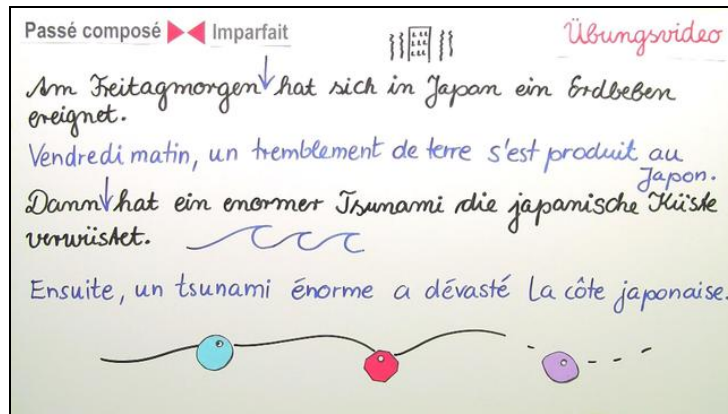 Passé composé Imparfait
Übungsvideo
Am Freitagmorgen hat sich in Japan ein Erdbeben
ereignet.
Vendredi matin, un tremblement de terre s'est produit au
Japon.
Dann hat ein enormer Tsunami die japanische Küste
verwüstet.
Ensuite, un tsunami énorme a dévasté la côte japonaise.